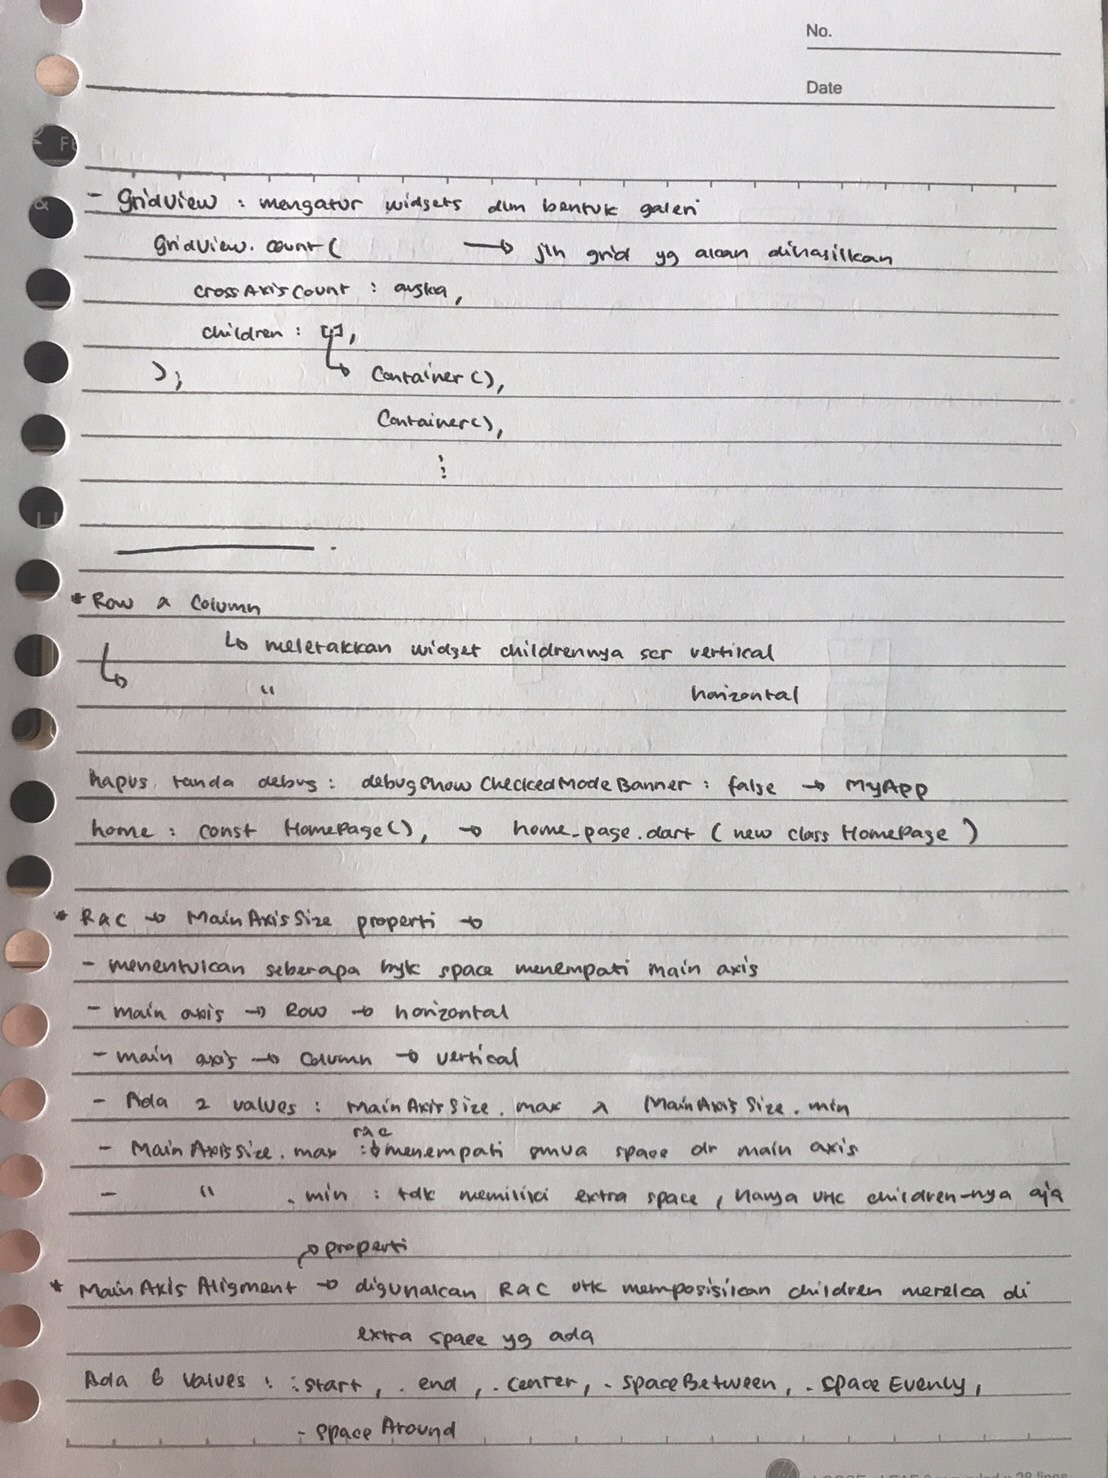 No.
Date
- GridView : mengatur widgets dlm bentuk galeri
GridView.count( → jlh grid yg akan dihasilkan
crossAxisCount : angka,
children : [],
); ↳ Container(),
Container(),
⋮
* Row & Column
↳ meletakkan widget childrennya scr vertikal
↳ " horizontal
hapus tanda debug : debugShowCheckedModeBanner : false → MyApp
home : const HomePage(), → home_page.dart ( new class HomePage )
* R&C → MainAxisSize properti →
- menentukan seberapa byk space menempati main axis
- main axis → Row → horizontal
- main axis → Column → vertical
- Ada 2 values : MainAxisSize.max & MainAxisSize.min
- MainAxisSize.max : r&c menempati smua space dr main axis
- " .min : tdk memiliki extra space, hanya utk children-nya aja
↗ properti
* MainAxisAligment → digunakan R&C utk memposisikan children mereka di
extra space yg ada
Ada 6 values : .start, .end, .center, .spaceBetween, .spaceEvenly,
.spaceAround